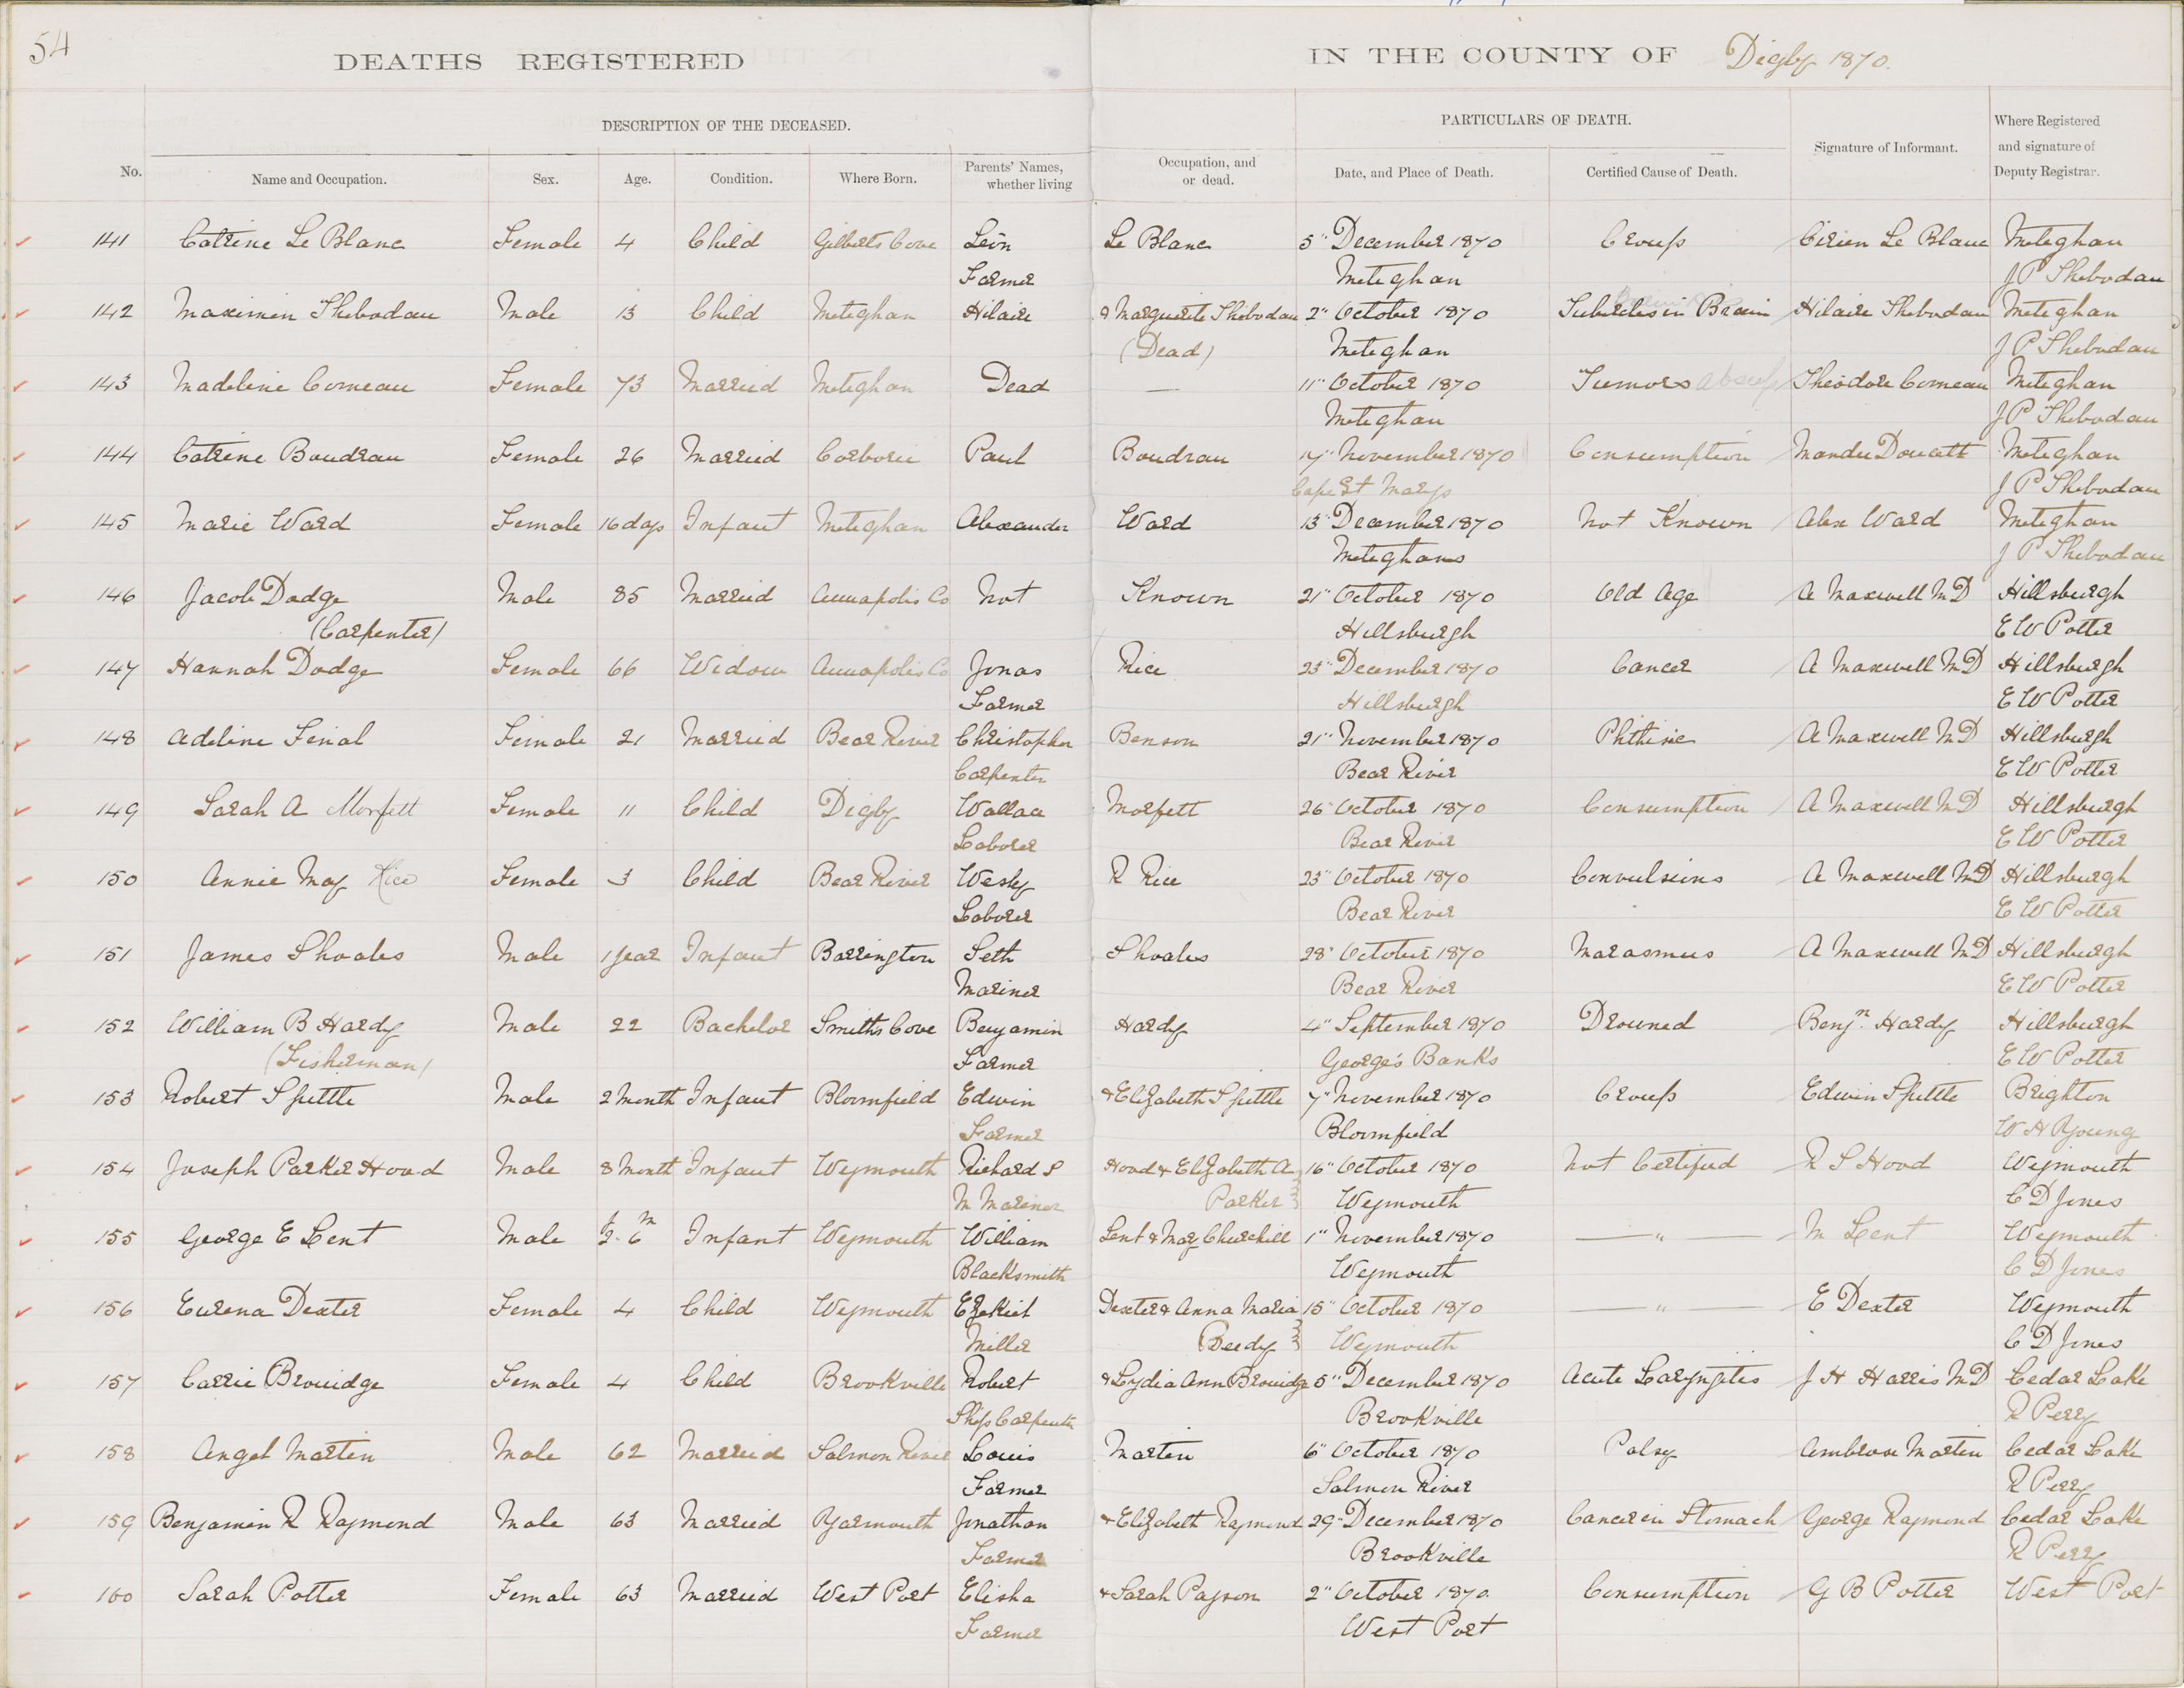 54
DEATHS REGISTERED IN THE COUNTY OF Digby 1870.
DESCRIPTION OF THE DECEASED. PARTICULARS OF DEATH.
No. Name and Occupation. Sex. Age. Condition. Where Born. Parents' Names, whether living Occupation, and or dead. Date, and Place of Death. Certified Cause of Death. Signature of Informant. Where Registered and signature of Deputy Registrar.
141 Catrine Le Blanc Female 4 Child Gilberts Cove Leōn Le Blanc 5" December 1870 Croup Cirien Le Blanc Meteghan
Farmer Meteghan J P Thebodau
142 Maximin Thibodau Male 13 Child Meteghan Hilaire & Marguerite Thibodau 2" October 1870 Tubercles in Brain Hilaire Thebodau Meteghan
(Dead) Meteghan J P Thebodau
143 Madeline Comeau Female 73 Married Meteghan Dead — 11" October 1870 Tumors Theodore Comeau Meteghan
Meteghan J P Thebodau
144 Catrine Boudrau Female 26 Married Corborie Paul Boudrau 17" November 1870 Consumption Mandu Doucett Meteghan
Cape St Marys J P Thebodau
145 Marie Ward Female 16 days Infant Meteghan Alexander Ward 13" December 1870 Not Known Alex Ward Meteghan
Meteghans J P Thebodau
146 Jacob Dodge Male 85 Married Annapolis Co Not Known 21" October 1870 Old Age A Maxwell MD Hillsburgh
(Carpenter) Hillsburgh E W Potter
147 Hannah Dodge Female 66 Widow Annapolis Co Jonas Rice 23" December 1870 Cancer A Maxwell MD Hillsburgh
Farmer Hillsburgh E W Potter
148 Adeline Fenal Female 21 Married Bear River Christopher Benson 21" November 1870 Phthisic A Maxwell MD Hillsburgh
Carpenter Bear River E W Potter
149 Sarah A Morfett Female 11 Child Digby Wallace Morfett 26" October 1870 Consumption A Maxwell MD Hillsburgh
Laborer Bear River E W Potter
150 Annie May Rice Female 3 Child Bear River Wesley R Rice 23" October 1870 Convulsions A Maxwell MD Hillsburgh
Laborer Bear River E W Potter
151 James Shoales Male 1 year Infant Barrington Seth Shoales 28" October 1870 Marasmus A Maxwell MD Hillsburgh
Mariner Bear River E W Potter
152 William B Hardy Male 22 Bachelor Smiths Cove Benjamin Hardy 4" September 1870 Drowned Benjn. Hardy Hillsburgh
(Fisherman) Farmer George's Banks E W Potter
153 Robert Spittle Male 2 Month Infant Bloomfield Edwin & Elizabeth Spittle 7" November 1870 Croup Edwin Spittle Brighton
Farmer Bloomfield W H Young
154 Joseph Parker Hood Male 8 Month Infant Weymouth Richard S Hood & Elizabeth A 16" October 1870 Not Certified R S Hood Weymouth
M Mariner Parker Weymouth C D Jones
155 George E Lent Male y m 2. 6 Infant Weymouth William Lent & May Churchill 1" November 1870 — " — M Lent Weymouth
Blacksmith Weymouth C D Jones
156 Eurena Dexter Female 4 Child Weymouth Ezekiel Dexter & Anna Maria 15" October 1870 — " — E Dexter Weymouth
Miller Beedy Weymouth C D Jones
157 Carrie Brouidge Female 4 Child Brookville Robert & Lydia Ann Brouidge 5" December 1870 Acute Laryngitis J H Harris MD Cedar Lake
Ship Carpenter Brookville R Perry
158 Angel Martin Male 62 Married Salmon River Louis Martin 6" October 1870 Palsy Ambrose Martin Cedar Lake
Farmer Salmon River R Perry
159 Benjamin R Raymond Male 63 Married Yarmouth Jonathan & Elizabeth Raymond 29" December 1870 Cancer in Stomach George Raymond Cedar Lake
Farmer Brookville R Perry
160 Sarah Potter Female 63 Married West Port Elisha & Sarah Payson 2" October 1870 Consumption G B Potter West Port
Farmer West Port